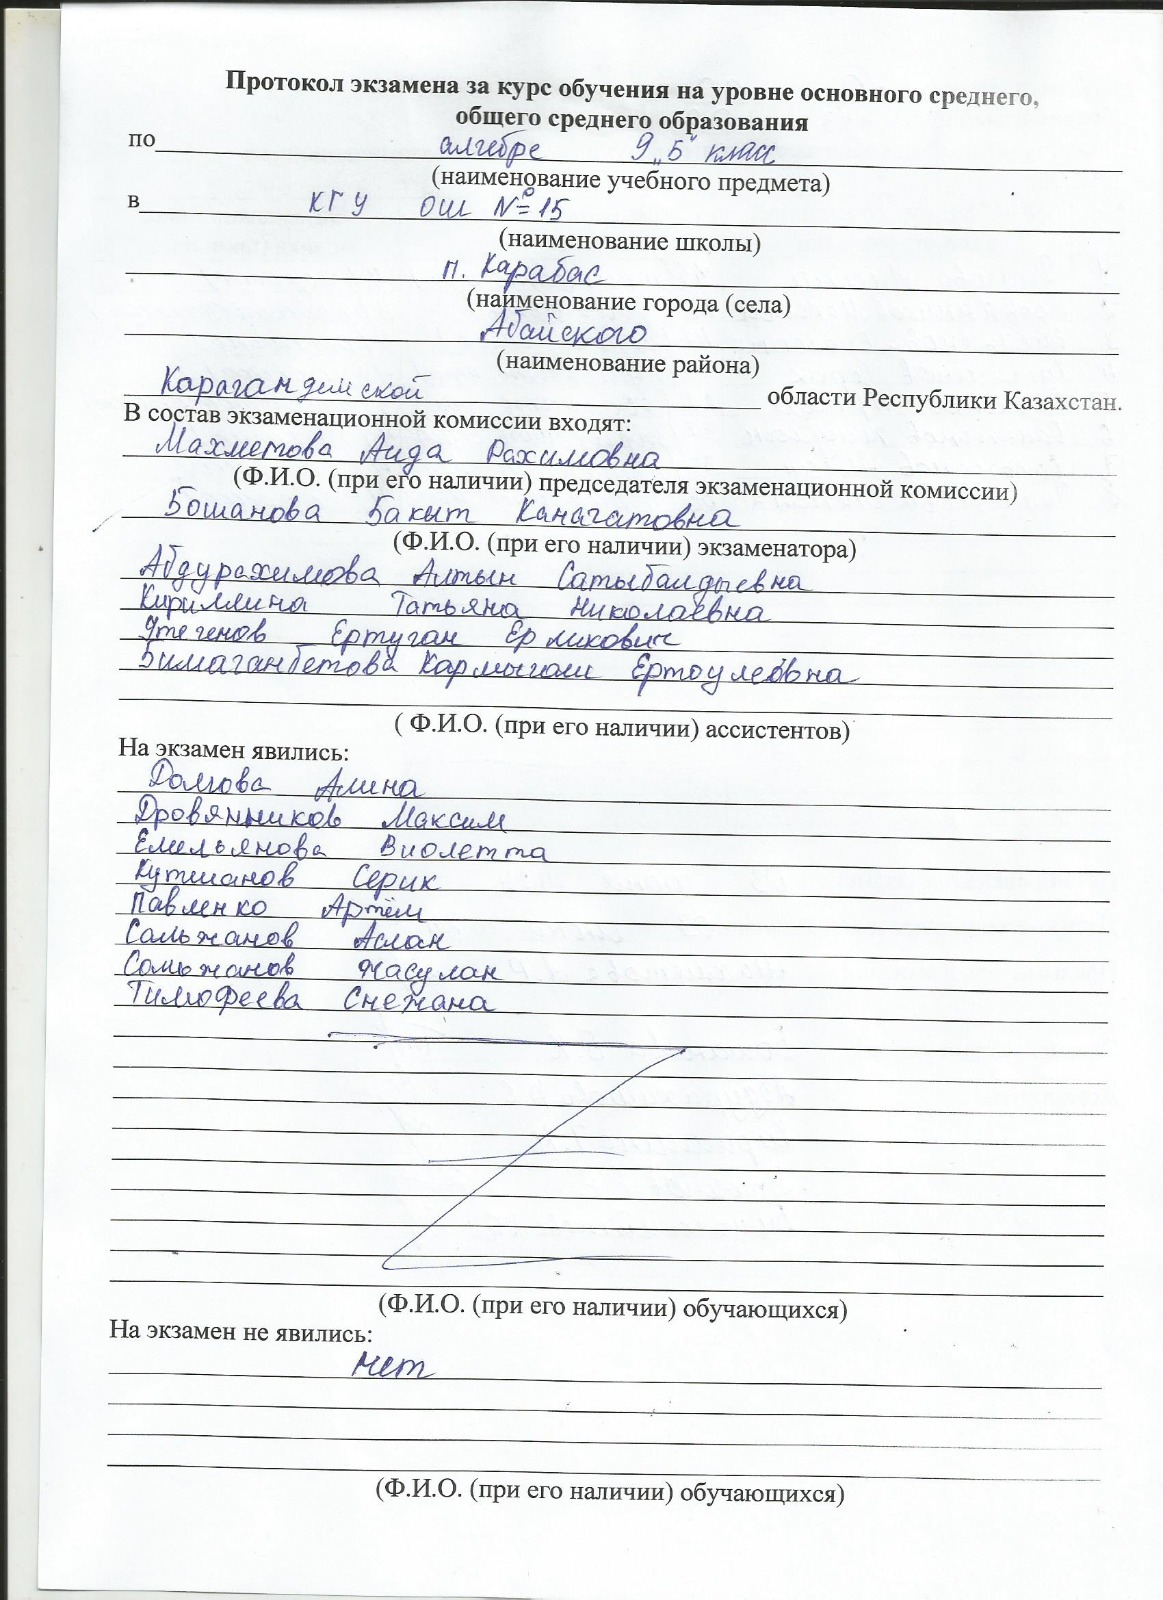 Протокол экзамена за курс обучения на уровне основного среднего,
общего среднего образования
по алгебре 9 „Б" класс
(наименование учебного предмета)
в КГУ ОШ №15
(наименование школы)
п. Карабас
(наименование города (села)
Абайского
(наименование района)
Карагандинской области Республики Казахстан.
В состав экзаменационной комиссии входят:
Махметова Аида Рахимовна
(Ф.И.О. (при его наличии) председателя экзаменационной комиссии)
Бошанова Бакыт Канагатовна
(Ф.И.О. (при его наличии) экзаменатора)
Абдурахимова Алтын Сатыбалдыевна
Кириллина Татьяна Николаевна
Утегенов Ертуган Ерликович
Бимаганбетова Карлыгаш Ертоулеовна
( Ф.И.О. (при его наличии) ассистентов)
На экзамен явились:
Долгова Алина
Дровянников Максим
Емельянова Виолетта
Кутжанов Серик
Павленко Артём
Сальжанов Аслан
Сальжанов Жасулан
Тимофеева Снежана
(Ф.И.О. (при его наличии) обучающихся)
На экзамен не явились:
нет
(Ф.И.О. (при его наличии) обучающихся)